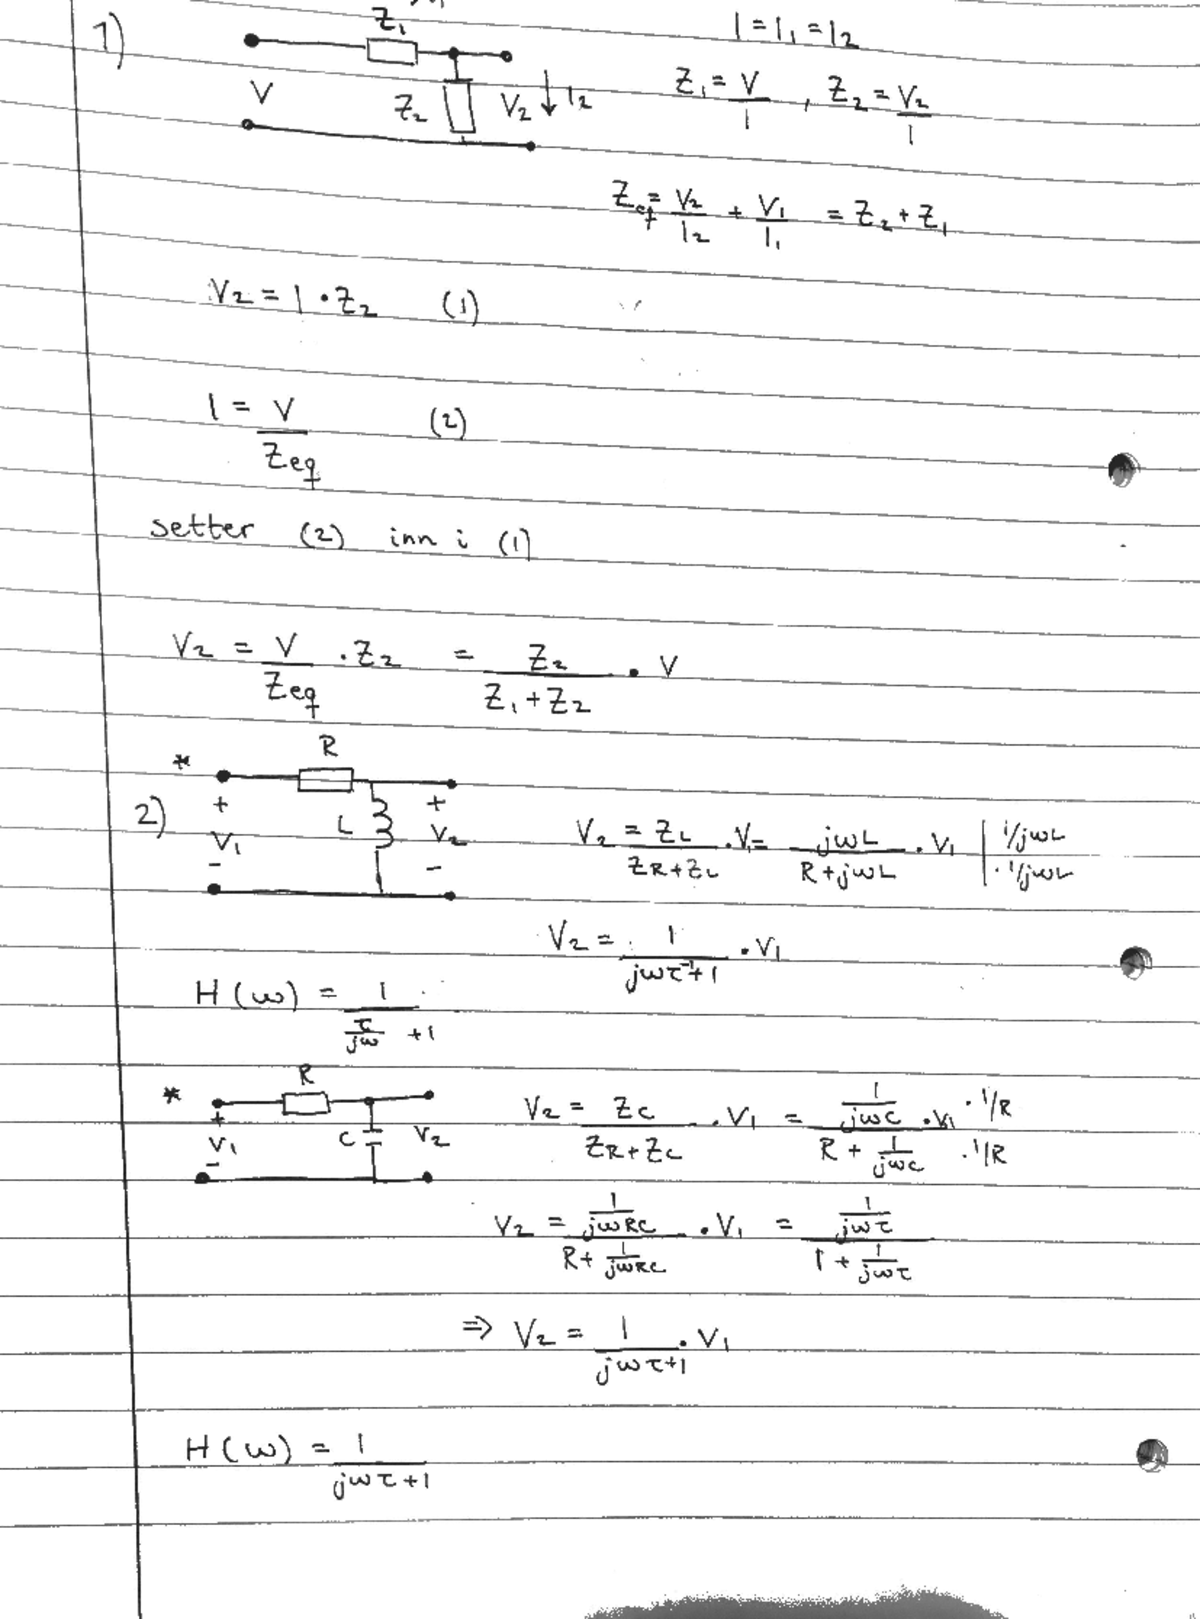 1)
Z₁
V
Z₂
V₂ ↓ I₂
I = I₁ = I₂
Z₁ = V/I , Z₂ = V₂/I
Z_eq = V₂/I₂ + V₁/I₁ = Z₂ + Z₁
V₂ = I · Z₂ (1)
I = V/Zeq (2)
setter (2) inn i (1)
V₂ = V/Zeq · Z₂ = Z₂/(Z₁ + Z₂) · V
*
R
2)
+ V₁ -
L
+ V₂ -
V₂ = Z_L/(Z_R + Z_L) · V₁ = jωL/(R + jωL) · V₁ | 1/jωL · 1/jωL
V₂ = 1/(jωτ⁻¹ + 1) · V₁
H(ω) = 1/(τ/jω + 1)
*
R
+ V₁ -
C
V₂
V₂ = Z_C/(Z_R + Z_C) · V₁ = (1/jωC · V₁)/(R + 1/jωC) · 1/R · 1/R
V₂ = (1/jωRC)/(R + 1/jωRC) · V₁ = (1/jωτ)/(1 + 1/jωτ)
⇒ V₂ = 1/(jωτ + 1) · V₁
H(ω) = 1/(jωτ + 1)